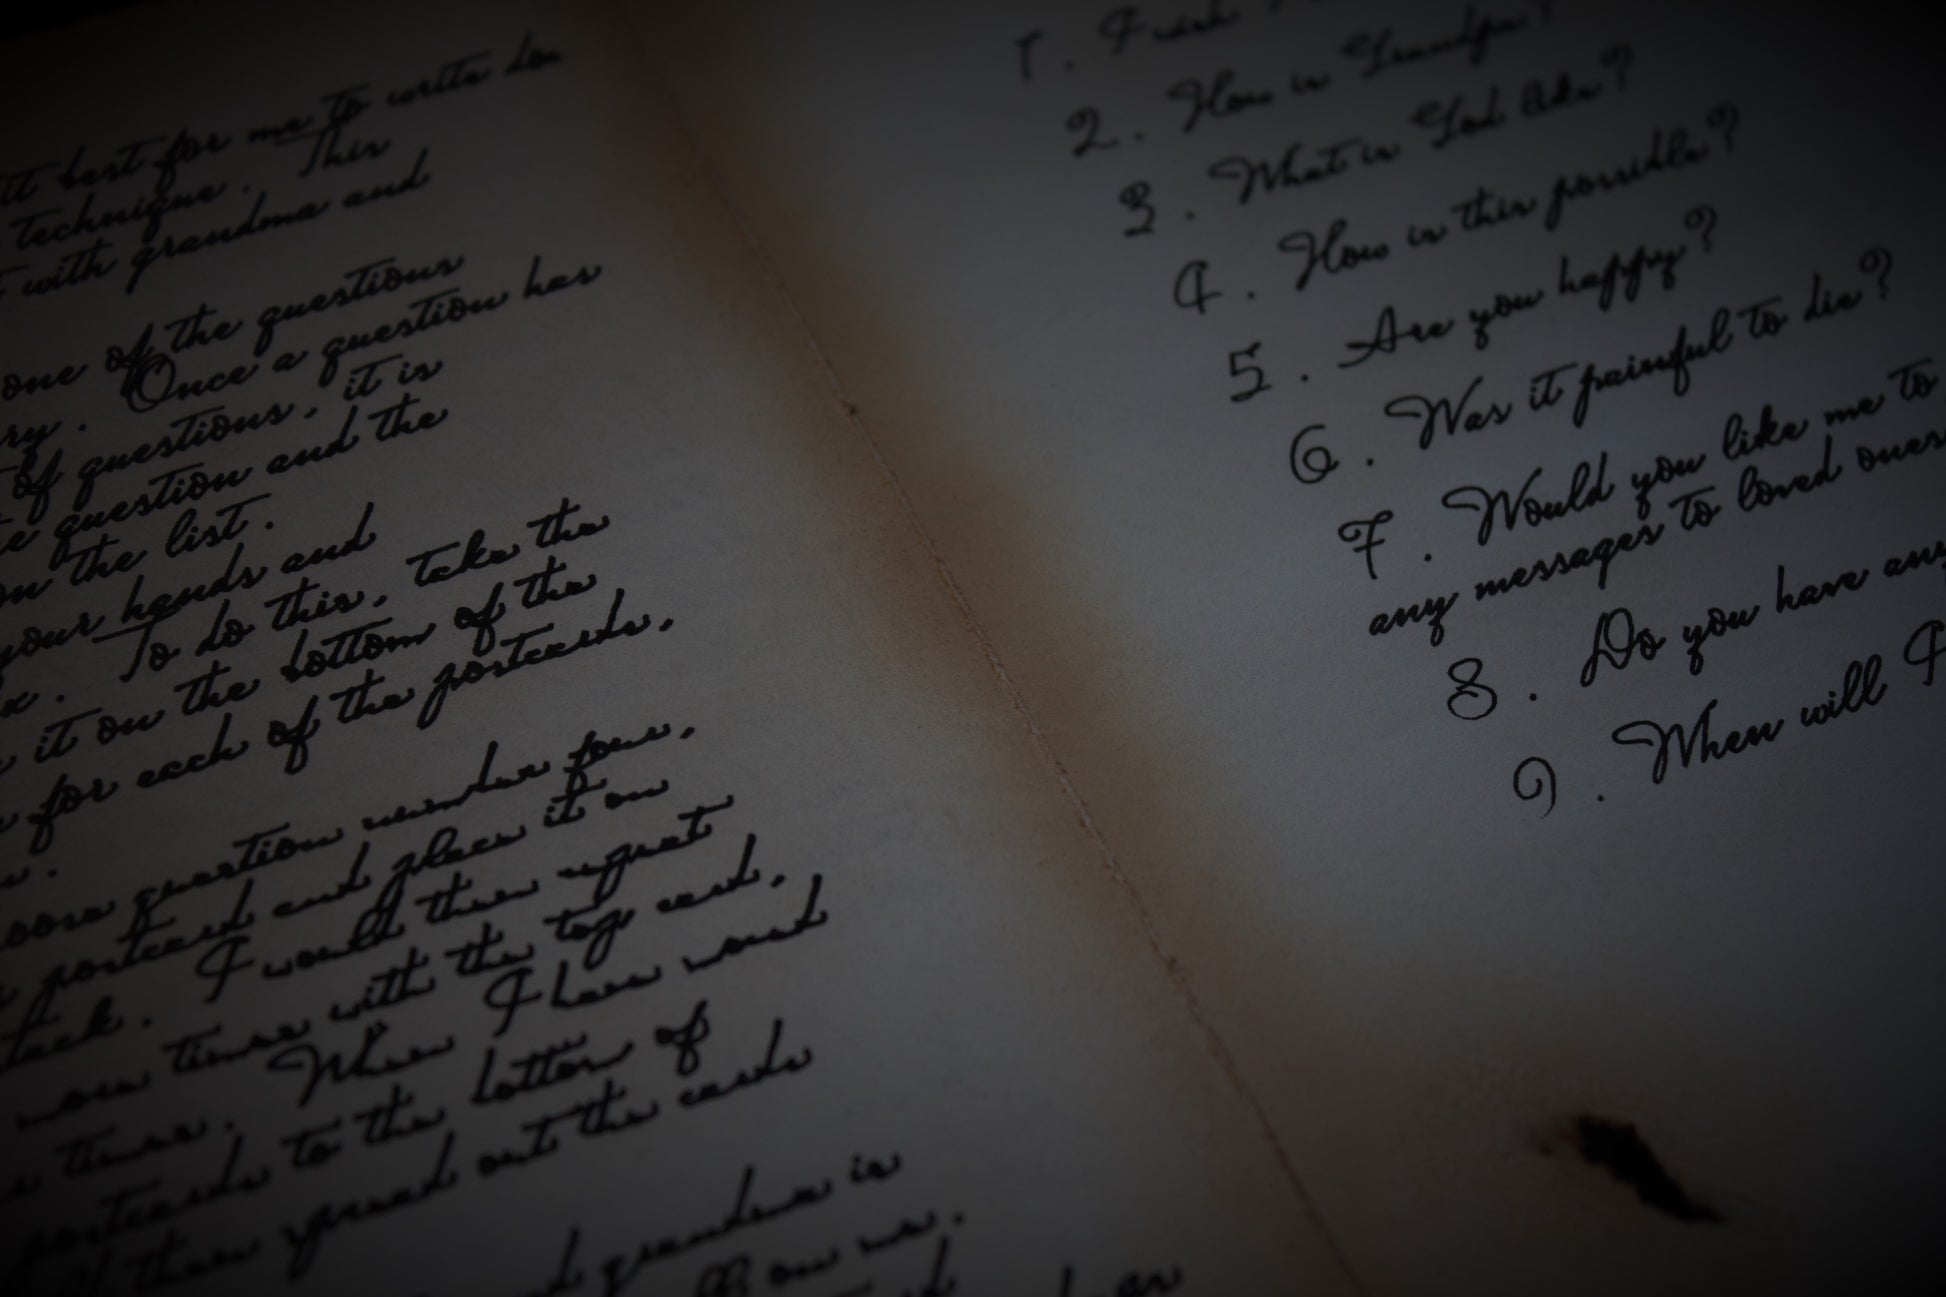 it best for me to write do
technique. This
with grandma and
one of the questions
ry. Once a question has
of questions, it is
e question and the
on the list.
your hands and
x. To do this, take the
it on the bottom of the
for each of the postcards,
oose question number four,
postcard and place it on
tack. I would then repeat
more times with the top card,
times. When I have moved
postcards to the bottom of
them spread out the cards
grandma is
on me.
1.
2. How is Grandpa?
3. What is God like?
4. How is this possible?
5. Are you happy?
6. Was it painful to die?
7. Would you like me to
any messages to loved ones
8. Do you have any
9. When will I